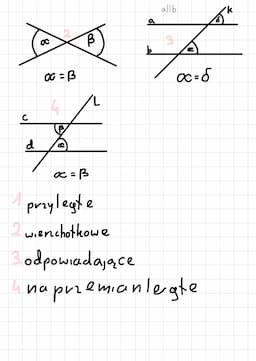 a||b
2
α β
α = β
k
a
δ
3
b
α
α = δ
4
L
c
β
d
α
α = β
1 przyległe
2 wierzchołkowe
3 odpowiadające
4 naprzemianległe